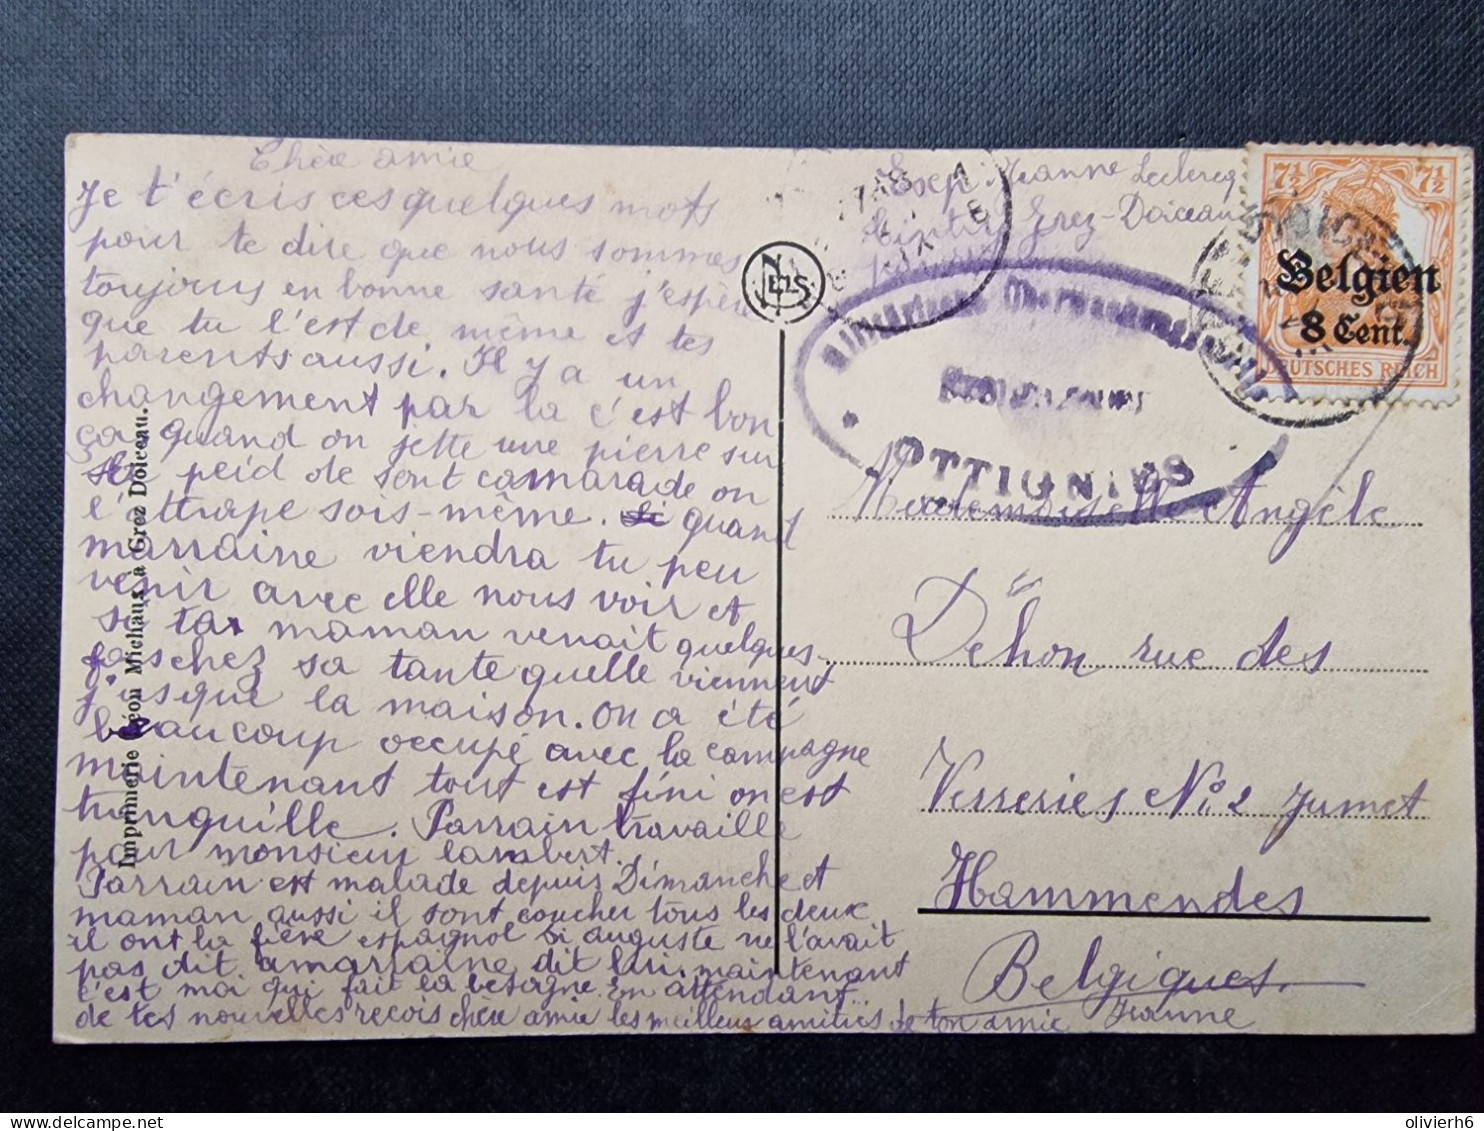 Chère amie
Je t'écris ces quelques mots
pour te dire que nous sommes
toujours en bonne santé j'espère
que tu l'est de même et tes
parents aussi. Il y a un
changement par la c'est bon
ça quand on jette une pierre sur
le peid de sont camarade on
l'attrape sois-même. quand
marraine viendra tu peu
venir avec elle nous voir et
si ta maman venait quelques
fois chez sa tante quelle viennent
j'usque la maison. On a été
beaucoup occupé avec la campagne
maintenant tout est fini on est
tranquille. Parrain travaille
pour monsieur lambert.
Parrain est malade depuis Dimanche et
maman aussi il sont coucher tous les deux
il ont la fière espagnol Si auguste ne l'avait
pas dit amarraine dit lui. maintenant
c'est moi qui fait la besogne En attendant
de tes nouvelles reçois chère amie les meilleurs amitiés de ton amie Jeanne
Imprimerie Léon Michaux, à Grez Doiceau.
NELS
Exp Jeanne Leclercq
Grez-Doiceau
OTTIGNIES
7½ 7½
Belgien
8 Cent.
DEUTSCHES REICH
Mademoiselle Angèle
Dehon rue des
Verreries No 2 Jumet
Hammendes
Belgiques.
olivierh6